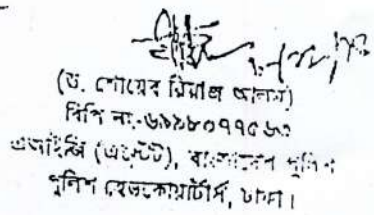 (ড. শোয়েব রিয়াজ আলম)
বিপি নং-৬৯৯৮০৭৭৫৬৩
এআইজি (এস্টেট), বাংলাদেশ পুলিশ
পুলিশ হেডকোয়ার্টার্স, ঢাকা।